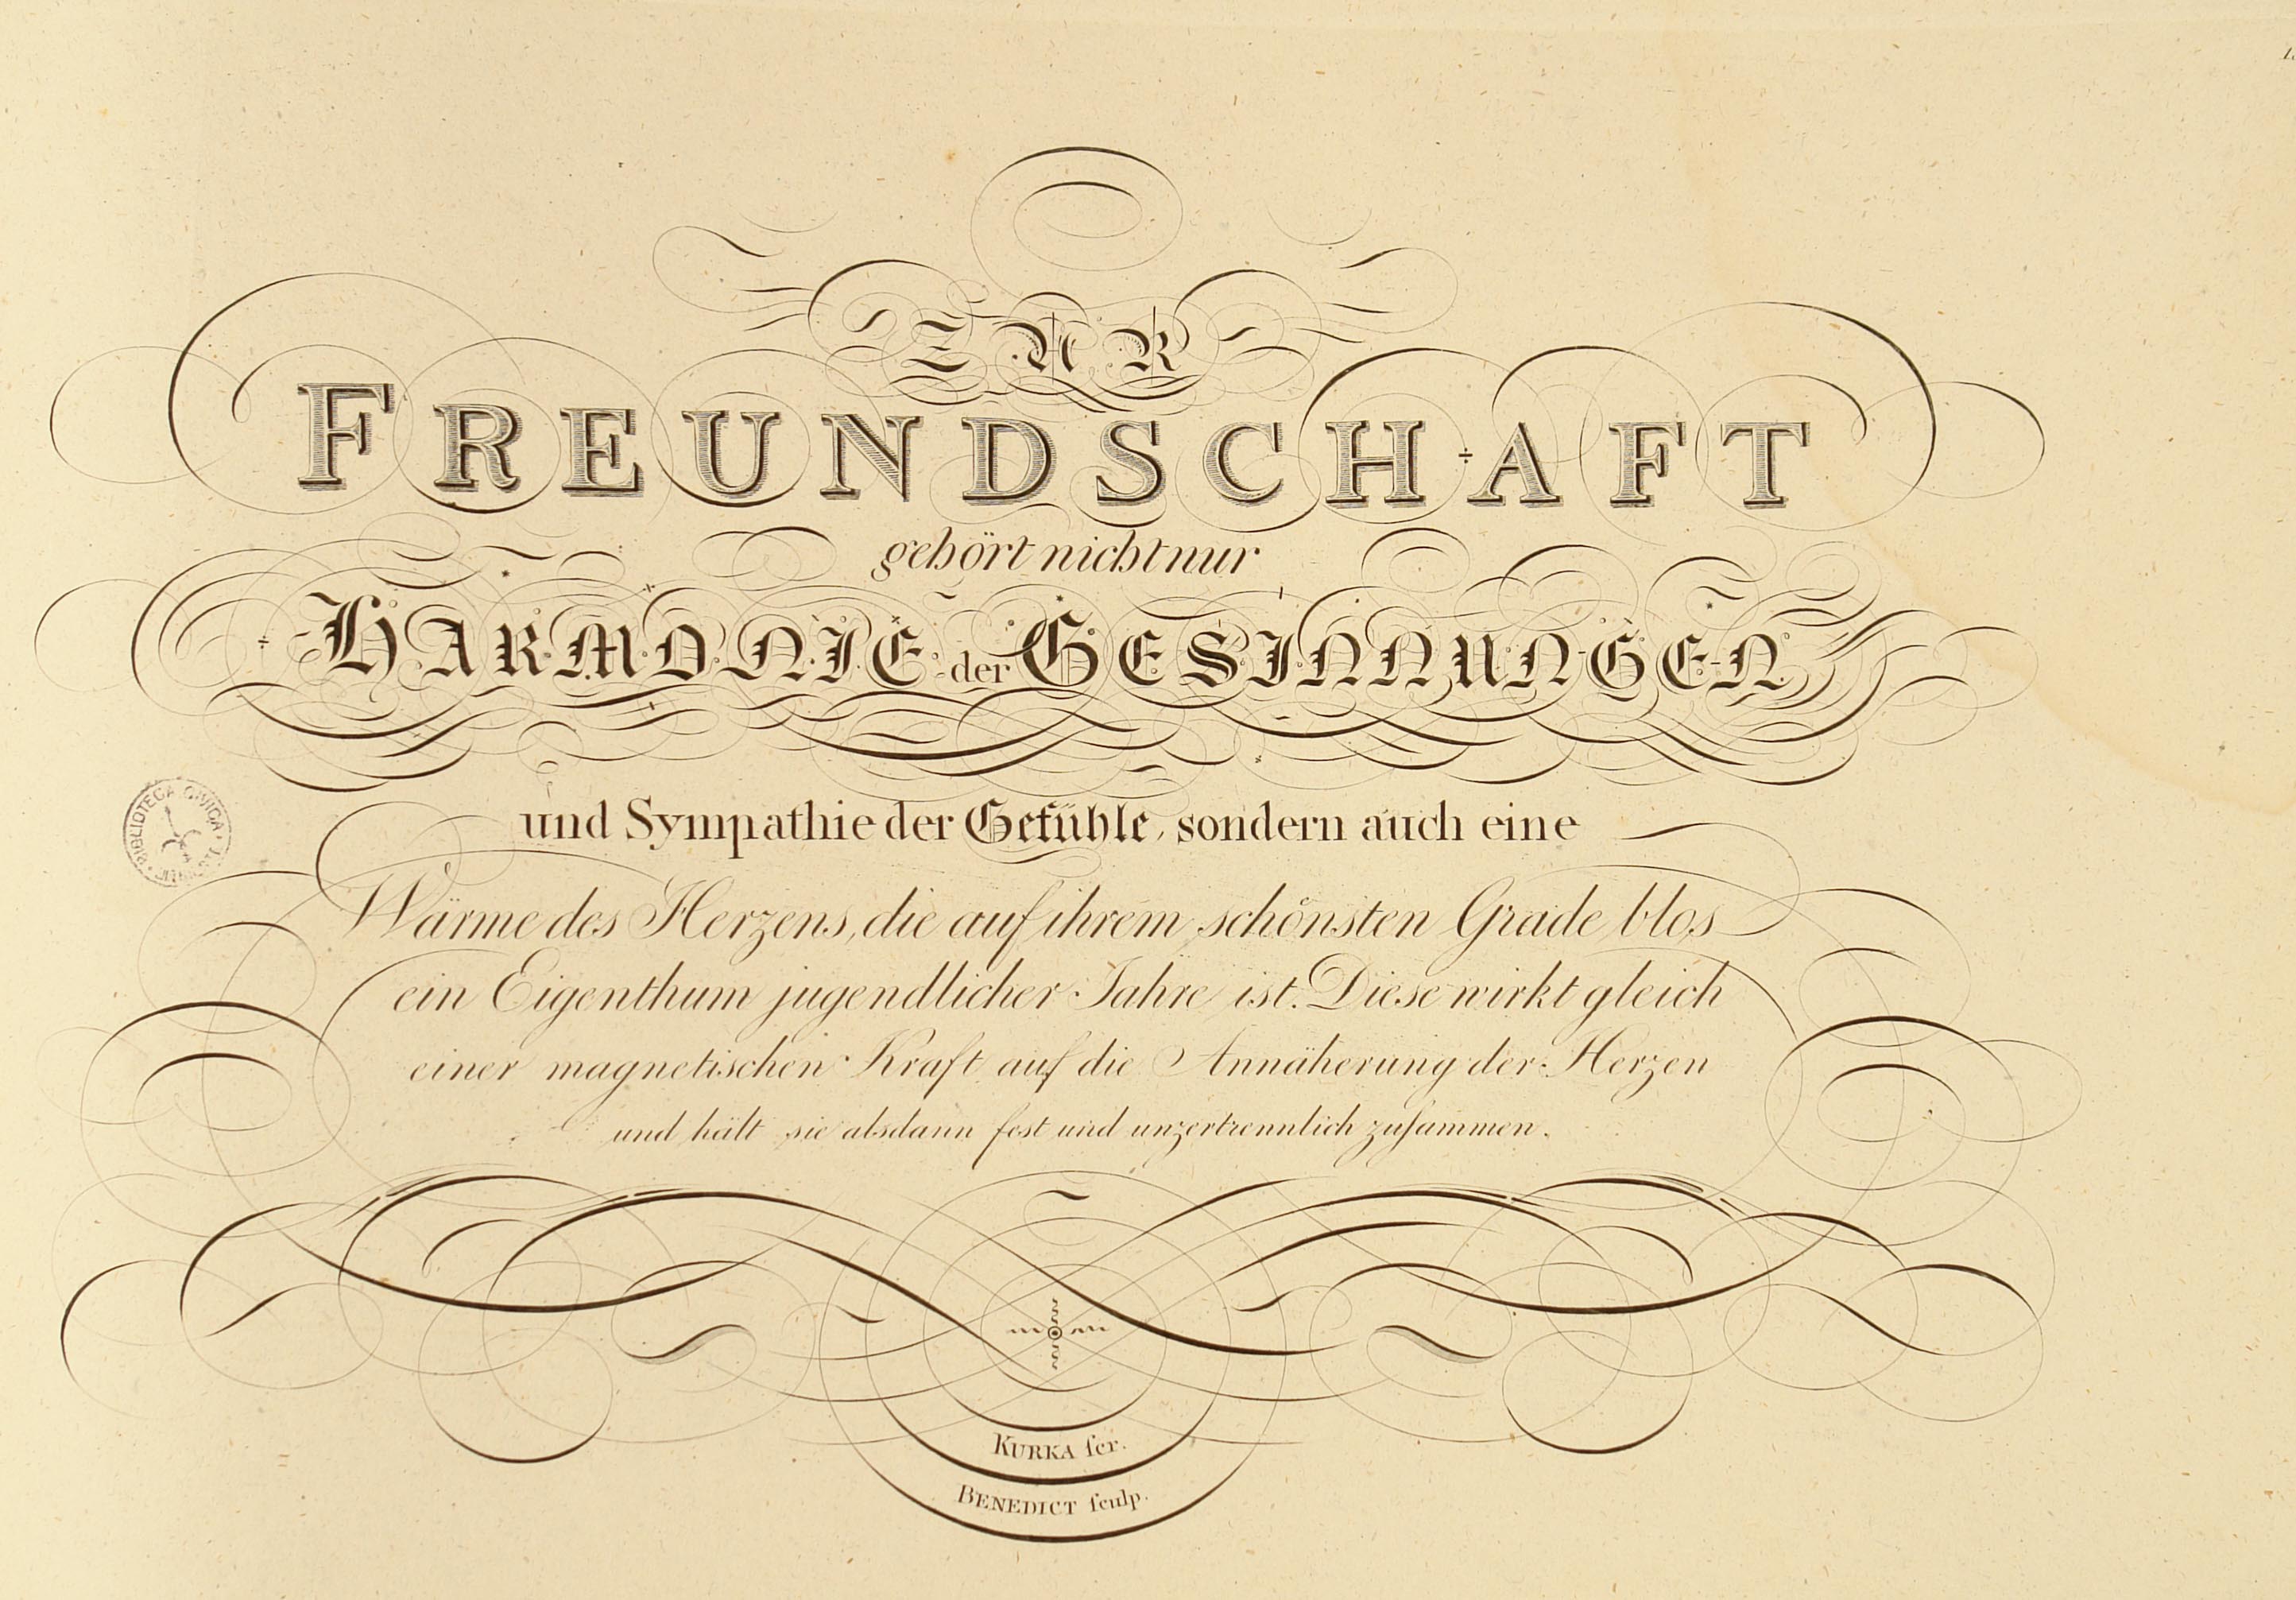 ZUR
FREUNDSCHAFT
gehört nicht nur
HARMONIE der GESINNUNGEN
und Sympathie der Gefühle, sondern auch eine
Wärme des Herzens, die auf ihrem schönsten Grade blos
ein Eigenthum jugendlicher Jahre ist. Diese wirkt gleich
einer magnetischen Kraft auf die Annäherung der Herzen
und hält sie alsdann fest und unzertrennlich zuſammen.
KURKA ſcr.
BENEDICT ſculp.
BIBLIOTECA CIVICA